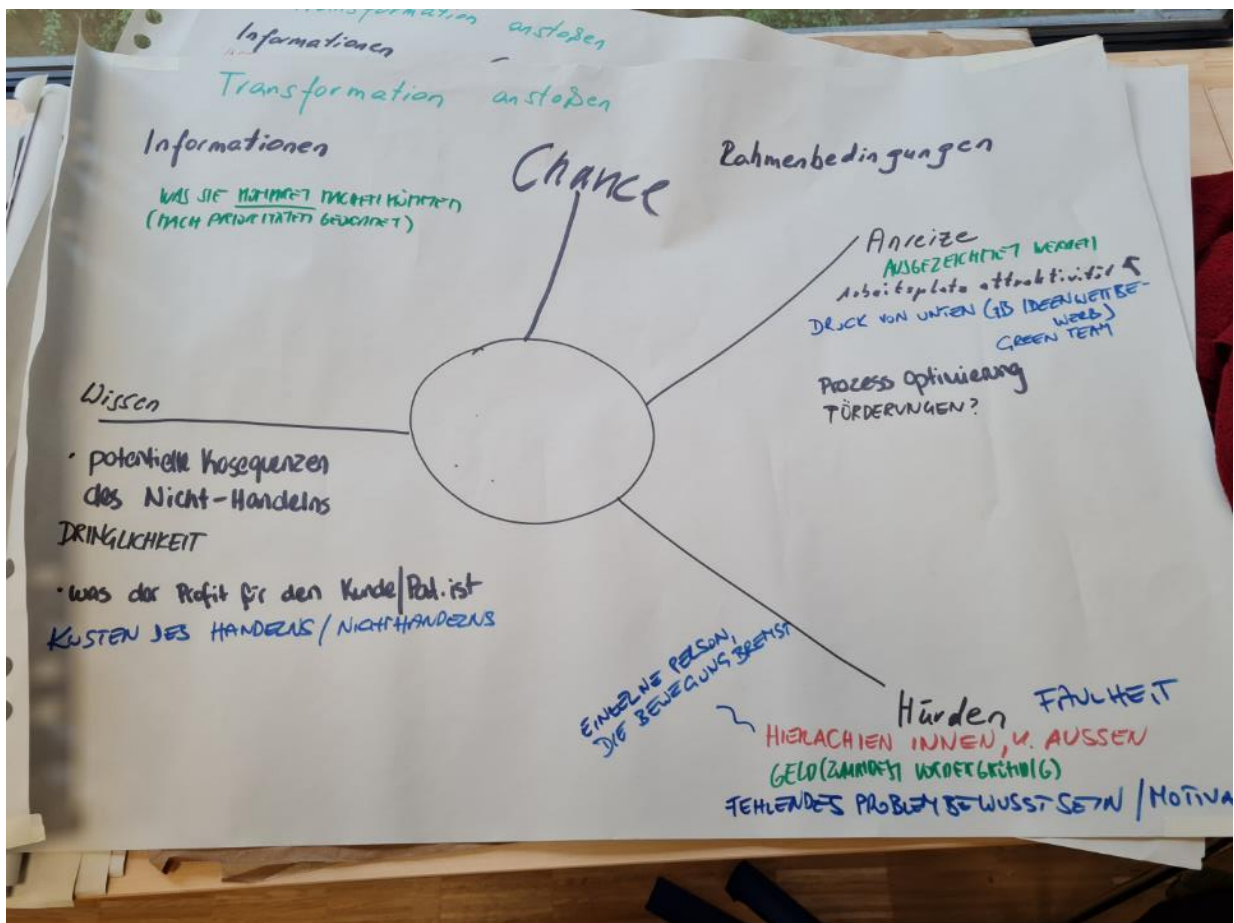 Transformation anstoßen
Informationen
Transformation anstoßen
Informationen
WAS SIE KONKRET MACHEN KÖNNEN
(NACH PRIORITÄTEN GEORDNET)
Chance
Rahmenbedingungen
Anreize
AUSGEZEICHNET WERDEN
Arbeitsplatz attraktivität
DRUCK VON UNTEN (ZB IDEENWETTBE-
WERB)
GREEN TEAM
Prozess Optimierung
FÖRDERUNGEN?
Wissen
· potentielle Kosequenzen
des Nicht-Handelns
DRINGLICHKEIT
· was der Profit für den Kunde/Pat. ist
KOSTEN DES HANDELNS / NICHTHANDELNS
EINZELNE PERSON,
DIE BEWEGUNG BREMST
Hürden FAULHEIT
HIERACHIEN INNEN, U. AUSSEN
GELD (ZUMINDEST VORDERGRÜNDIG)
FEHLENDES PROBLEMBEWUSSTSEIN / MOTIVA